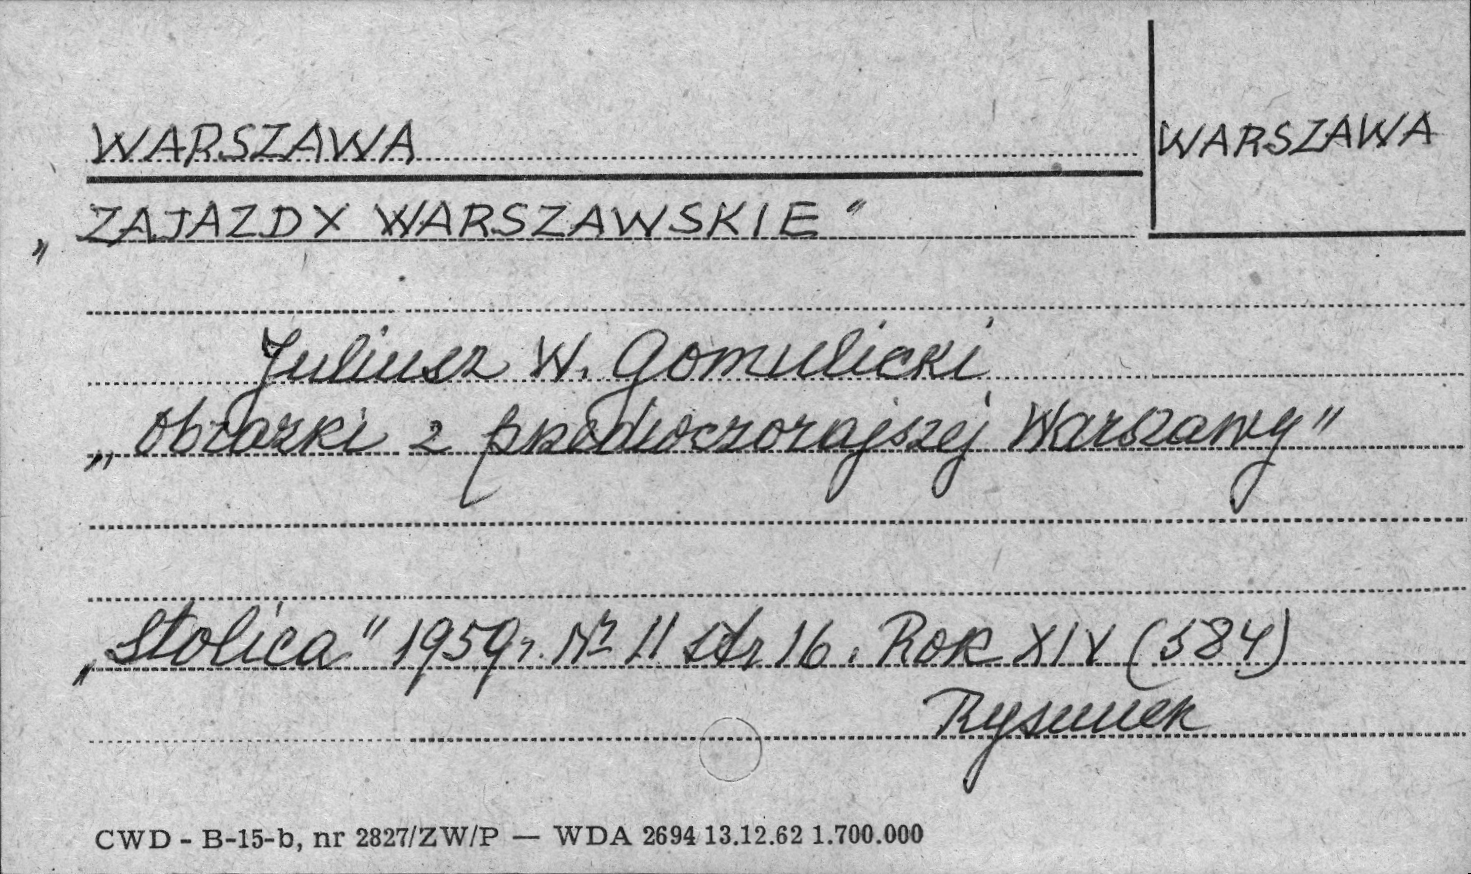 WARSZAWA
WARSZAWA
„ZAJAZDY WARSZAWSKIE"
Juliusz W. Gomulicki
„Obrazki z przedwczorajszej Warszawy"
„Stolica" 1959 r. Nr 11 str 16. Rok XIV (584)
Rysunek
CWD - B-15-b, nr 2827/ZW/P — WDA 2694 13.12.62 1.700.000